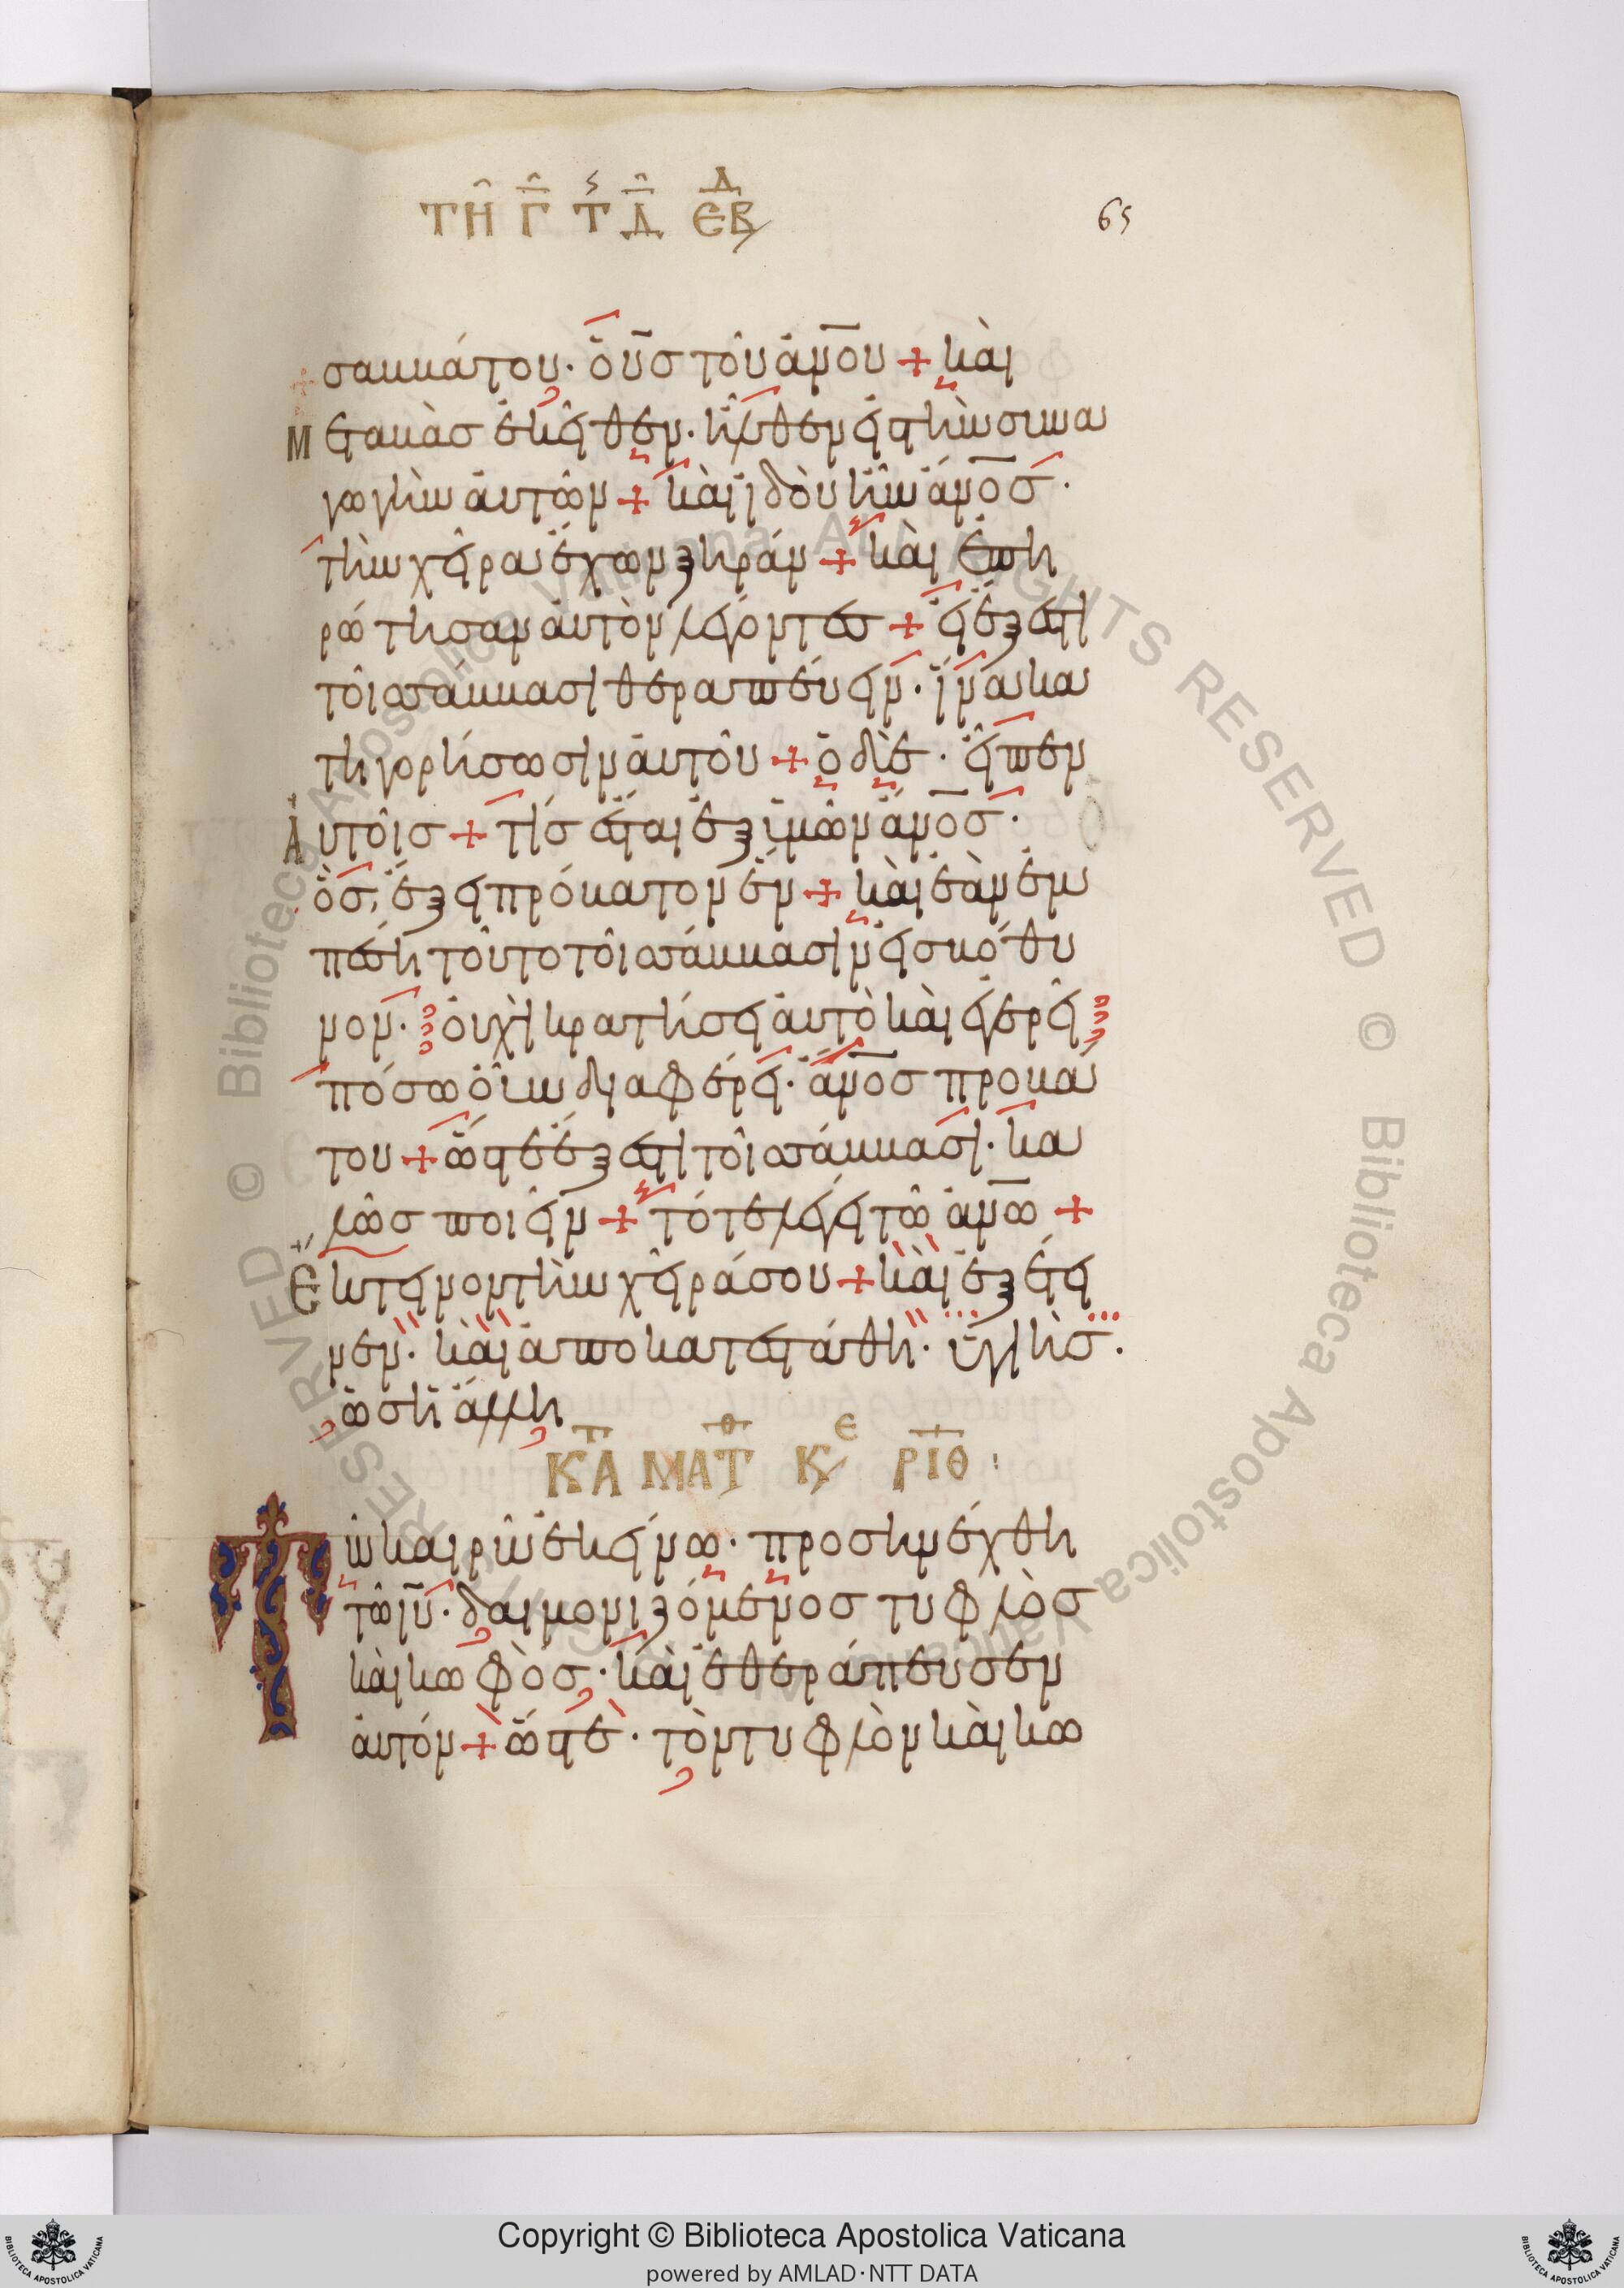 ΤΗ Γ Τ Δ ΕΒΔ
65
σαββάτου· ὁ υ̅ς̅ τοῦ α̅ν̅ο̅υ̅ + καὶ
Μεταβὰς ἐκεῖθεν· ἦλθεν εἰς τὴν συνα
γωγὴν αὐτῶν + καὶ ἰδοὺ ἦν α̅ν̅ο̅ς̅·
τὴν χεῖρα ἔχων ξηράν + καὶ ἐπη
ρώτησαν αὐτὸν λέγοντες + εἰ ἔξεστι
τοῖς σάββασι θεραπεύειν· ἵνα κα
τηγορήσωσιν αὐτοῦ + ὁ δὲ ι̅ς̅· εἶπεν
Αὐτοῖς + τίς ἔσται ἐξ ὑμῶν α̅ν̅ο̅ς̅·
ὃς ἕξει πρόβατον ἕν + καὶ ἐὰν ἐμ
πέσῃ τοῦτο τοῖς σάββασιν εἰς βόθυ
νον· οὐχὶ κρατήσει αὐτὸ καὶ ἐγερεῖ
πόσω οὖν διαφέρει· α̅ν̅ο̅ς̅ προβά
του + ὥστε ἔξεστι τοῖς σάββασι· κα
λῶς ποιεῖν + τότε λέγει τῶ α̅ν̅ω̅ +
Ἔκτεινον τὴν χεῖρά σου + καὶ ἐξέτει
νεν· καὶ ἀποκατεστάθη· ὑγιὴς·
ὡς ἡ ἄλλη
Κ̅Α̅ ΜΑΤΘ Κ̅ϛ Ε ΡΙΘ
Τῶ καιρῶ ἐκείνω· προσηνέχθη
τῶ ι̅υ̅· δαιμονιζόμενος τυφλὸς
καὶ κωφὸς· καὶ ἐθεράπευσεν
αὐτόν + ὥστε· τὸν τυφλὸν καὶ κω
© Biblioteca Apostolica Vaticana ALL RIGHTS RESERVED © Biblioteca Apostolica Vaticana ALL RIGHTS RESERVED
Copyright © Biblioteca Apostolica Vaticana
powered by AMLAD·NTT DATA
BIBLIOTECA APOSTOLICA VATICANA
BIBLIOTECA APOSTOLICA VATICANA